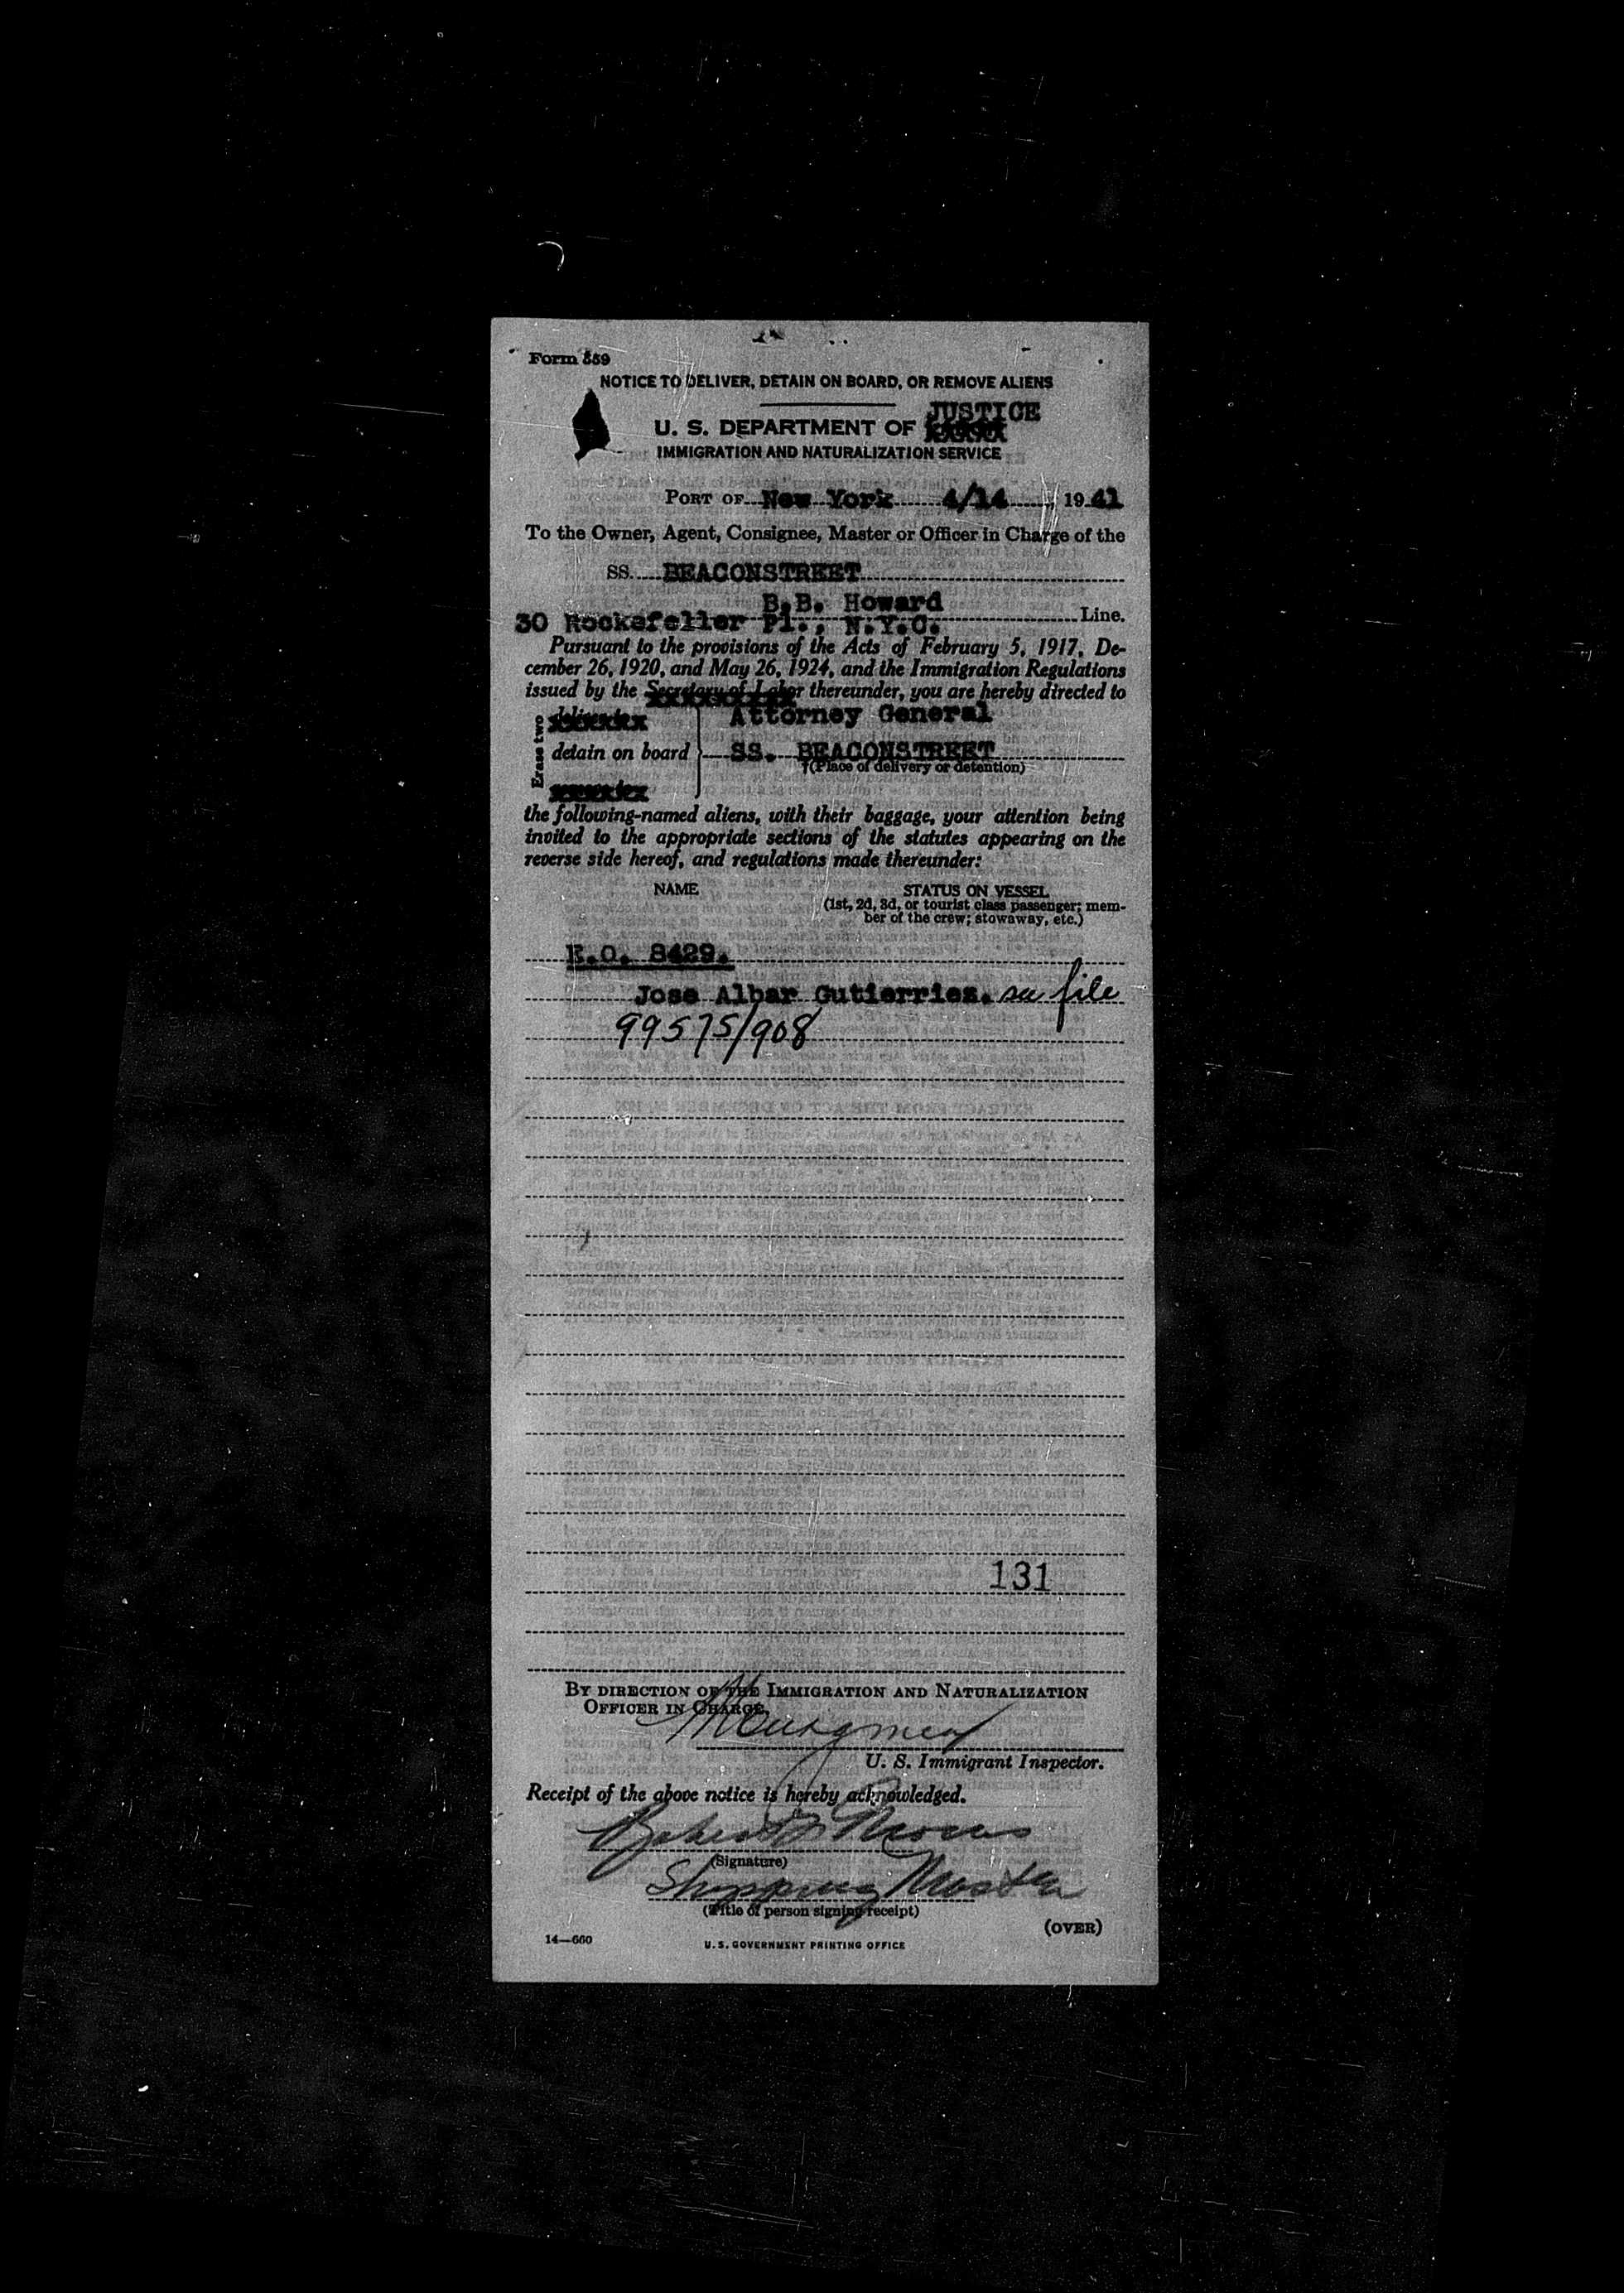 Form 559
NOTICE TO DELIVER, DETAIN ON BOARD, OR REMOVE ALIENS
JUSTICE
U. S. DEPARTMENT OF
IMMIGRATION AND NATURALIZATION SERVICE
PORT OF New York 4/14, 1941
To the Owner, Agent, Consignee, Master or Officer in Charge of the
SS. BEACONSTREET
B.B. Howard
30 Rockefeller Pl., N.Y.C. Line.
Pursuant to the provisions of the Acts of February 5, 1917, De-
cember 26, 1920, and May 26, 1924, and the Immigration Regulations
issued by the Secretary of Labor thereunder, you are hereby directed to
Attorney General
Erase two
detain on board SS. BEACONSTREET
†(Place of delivery or detention)
the following-named aliens, with their baggage, your attention being
invited to the appropriate sections of the statutes appearing on the
reverse side hereof, and regulations made thereunder:
NAME STATUS ON VESSEL
(1st, 2d, 3d, or tourist class passenger; mem-
ber of the crew; stowaway, etc.)
E.O. 8429.
Jose Albar Gutierries. see file
99575/908
131
BY DIRECTION OF THE IMMIGRATION AND NATURALIZATION
OFFICER IN CHARGE,
U. S. Immigrant Inspector.
Receipt of the above notice is hereby acknowledged.
(Signature)
Shipping Master
(Title of person signing receipt)
(OVER)
14—660 U. S. GOVERNMENT PRINTING OFFICE